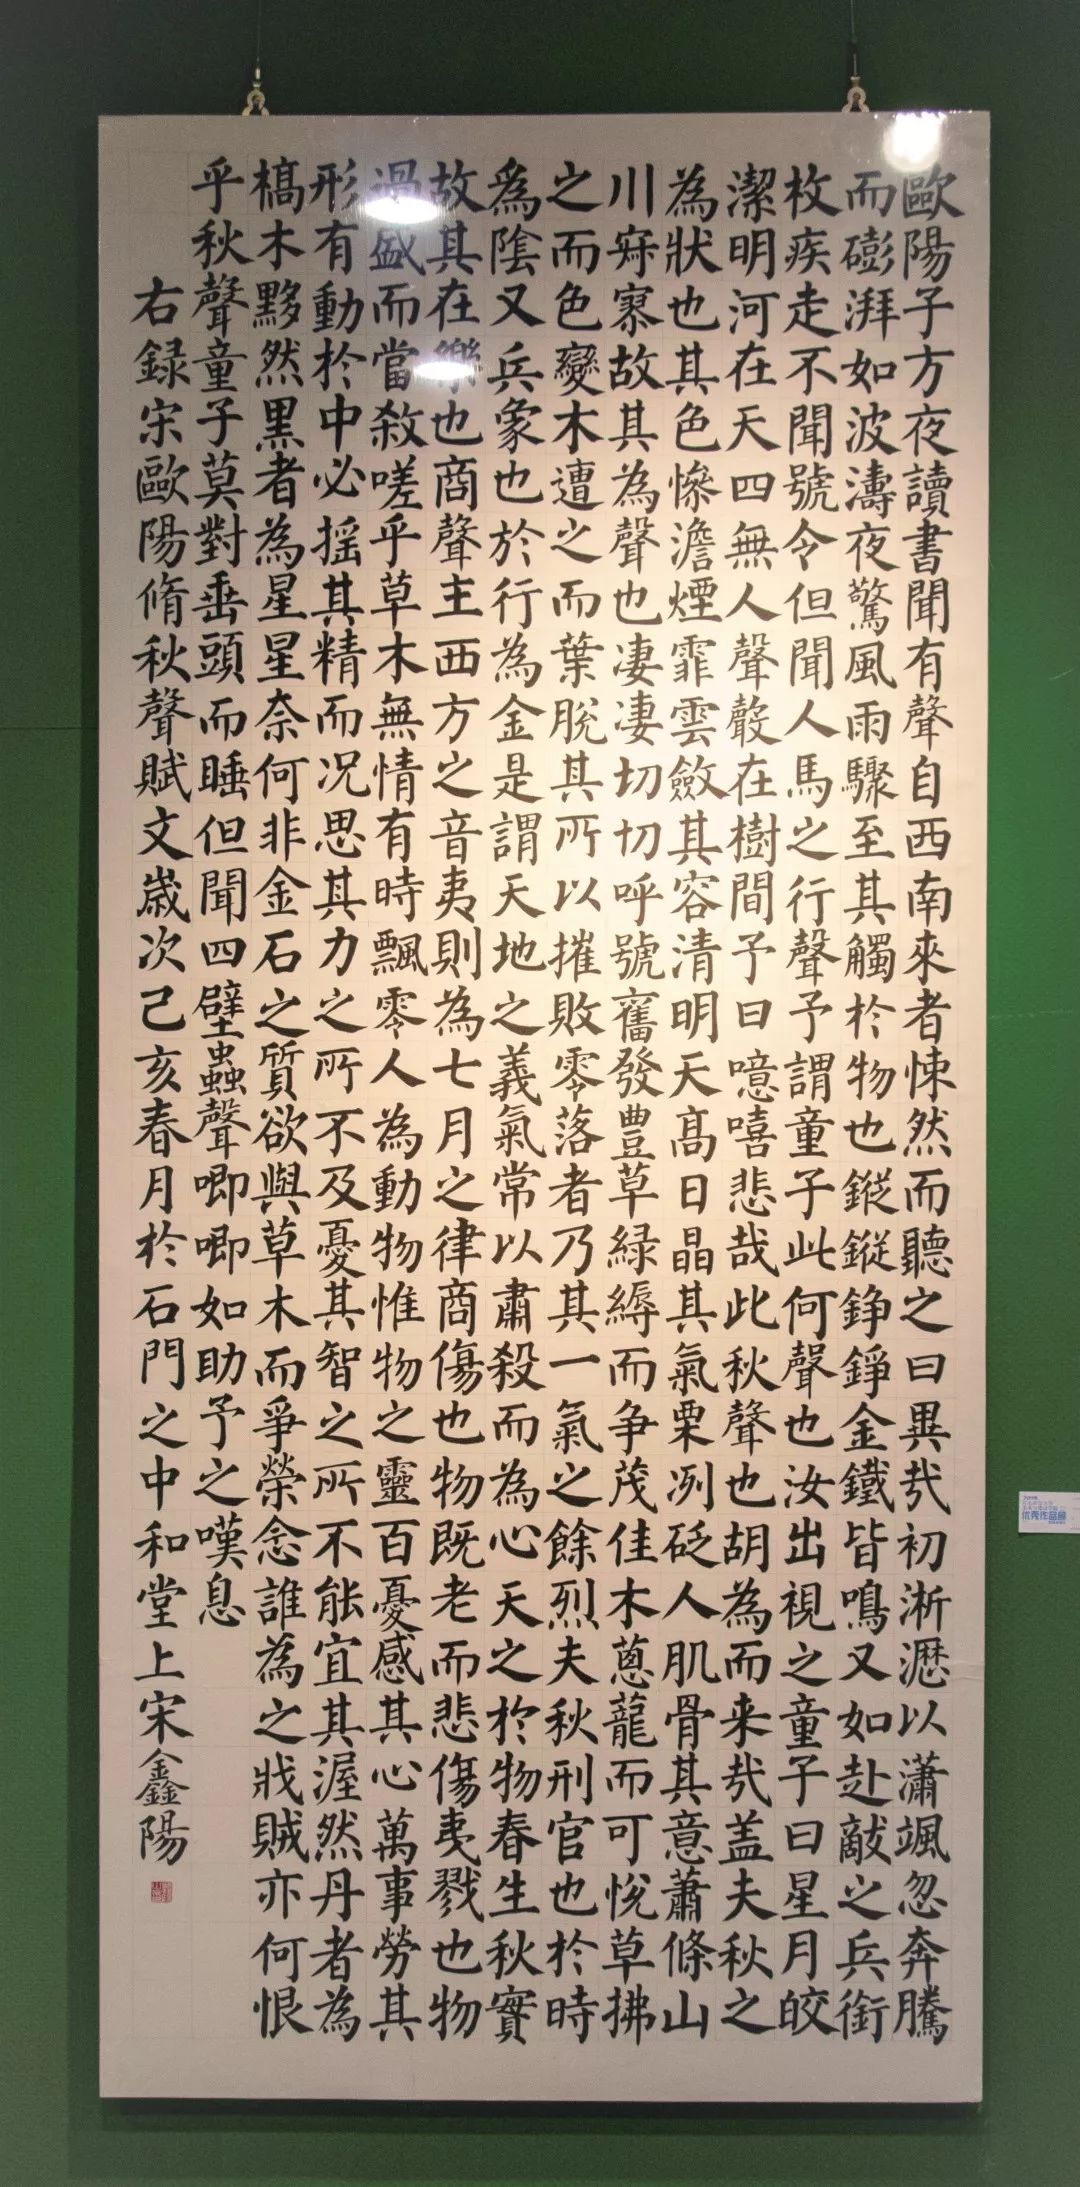 歐陽子方夜讀書聞有聲自西南來者悚然而聽之曰異㢤初淅瀝以瀟颯忽奔騰
而磞湃如波濤夜驚風雨驟至其觸於物也鏦鏦錚錚金鐵皆鳴又如赴敵之兵銜
枚疾走不聞號令但聞人馬之行聲予謂童子此何聲也汝出視之童子曰星月皎
潔明河在天四無人聲聲在樹間予曰噫嘻悲哉此秋聲也胡為而来㢤盖夫秋之
為狀也其色慘澹煙霏雲斂其容清明天髙日晶其氣栗冽砭人肌骨其意蕭條山
川寂寥故其為聲也凄凄切切呼號奮發豊草緑縟而争茂佳木蔥蘢而可悅草拂
之而色變木遭之而葉脫其所以摧敗零落者乃其一氣之餘烈夫秋刑官也於時
為陰又兵象也於行為金是謂天地之義氣常以肅殺而為心天之於物春生秋實
故其在樂也商聲主西方之音夷則為七月之律商傷也物既老而悲傷夷戮也物
過盛而當殺嗟乎草木無情有時飄零人為動物惟物之靈百憂感其心萬事勞其
形有動於中必摇其精而况思其力之所不及憂其智之所不能宜其渥然丹者為
槁木黟然黒者為星星奈何非金石之質欲與草木而爭榮念誰為之戕賊亦何恨
乎秋聲童子莫對垂頭而睡但聞四壁蟲聲唧唧如助予之嘆息
右録宋歐陽脩秋聲賦文歲次己亥春月於石門之中和堂上宋鑫陽
优秀作品展